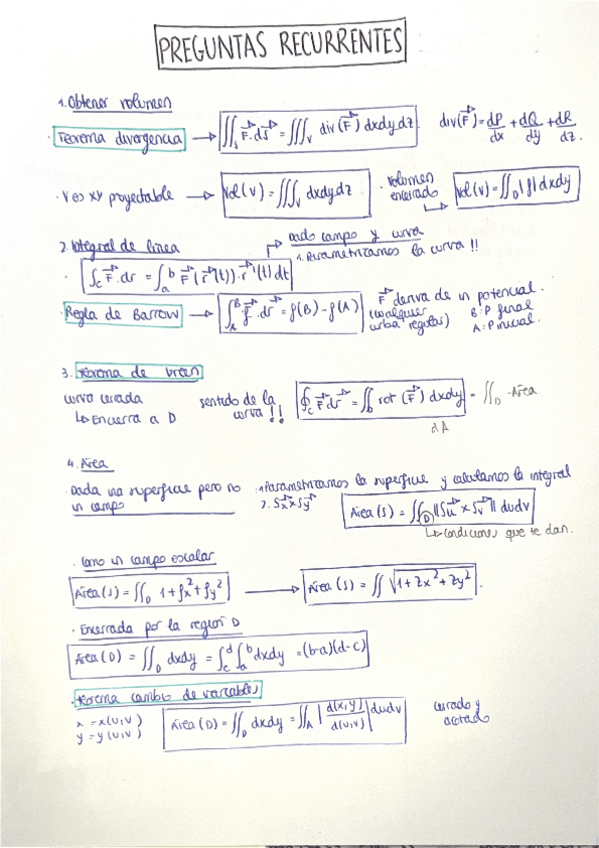 PREGUNTAS RECURRENTES
1. Obtener volumen
· Teorema divergencia → ∬ₛ F⃗·ds⃗ = ∭ᵥ div(F⃗) dxdydz div(F⃗) = dP/dx + dQ/dy + dR/dz.
· V es xy proyectable → Vol(V) = ∭ᵥ dxdydz · Volumen encerrado ↳ Vol(V) = ∬_D |f| dxdy
2. Integral de linea ↱ Dado campo y curva
1. Parametrizamos la curva!!
· ∫_C F⃗·dr = ∫ₐᵇ F⃗(r⃗(t))·r⃗'(t)dt
· Regla de Barrow → ∫_A^B f⃗·ds⃗ = f(B)-f(A) F⃗ deriva de un potencial.
(cualquier curva regular) B: P final
A: P inicial.
3. Teorema de Green
curva cerrada sentido de la curva!! ∮_C F⃗dr⃗ = ∬_D rot(F⃗) dxdy = ∬_D → Area
↳ Encierra a D dA
4. Área
· Dada una superficie pero no un campo 1. Parametrizamos la superficie y calculamos la integral
2. Sx⃗ x Sy⃗ Área(S) = ∬_D ||Su⃗ x Sv⃗|| dudv
↳ Condiciones que te dan.
· Como un campo escalar
Área(S) = ∬_D 1+fx²+fy² → Área(S) = ∬ √1+Zx²+Zy².
· Encerrada por la region D
Área(D) = ∬_D dxdy = ∫_c^d ∫_a^b dxdy = (b-a)(d-c)
· Teorema cambio de variables
x = x(u,v)
y = y(u,v) Área(D) = ∬_D dxdy = ∬_A |d(x,y)/d(u,v)| dudv cerrado y acotado